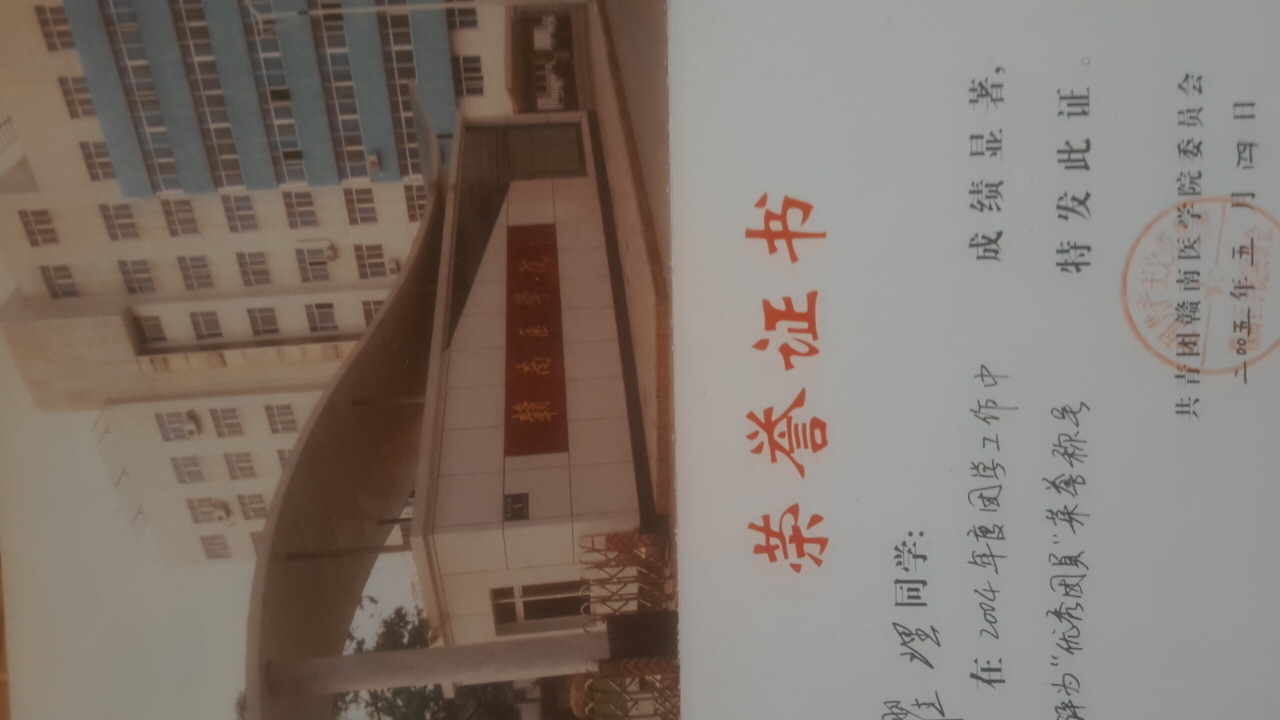 赣南医学院
荣誉证书
理同学:
在2004年度团学工作中 成绩显著,
评为“优秀团员”荣誉称号 特发此证。
共青团赣南医学院委员会
二00五年五月四日